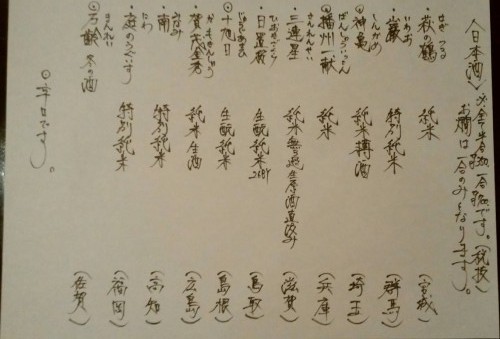 〈日本酒〉 ※全 です。(税抜)
お燗は一合のみとなります。
はぎ つる
・萩の鶴 純米 (宮城)
いわお
・巌 特別純米 (群馬)
しんかめ
◎神亀 純米 (埼玉)
ばんしゅういっこん
◎播州一献 純米 (兵庫)
さんれんせい
・三連星 純米無濾過生原酒直汲み (滋賀)
ひおきざくら
・日置桜 生酛純米 26BY (鳥取)
じゅうじあさひ
・十旭日 生酛純米 (島根)
かもきんしゅう
・賀茂金秀 純米生酒 (広島)
みなみ
・南 特別純米 (高知)
にわ
・庭のうぐいす 特別純米 (福岡)
まんれい
・万齢 冬の酒 (佐賀)
◎辛口です。